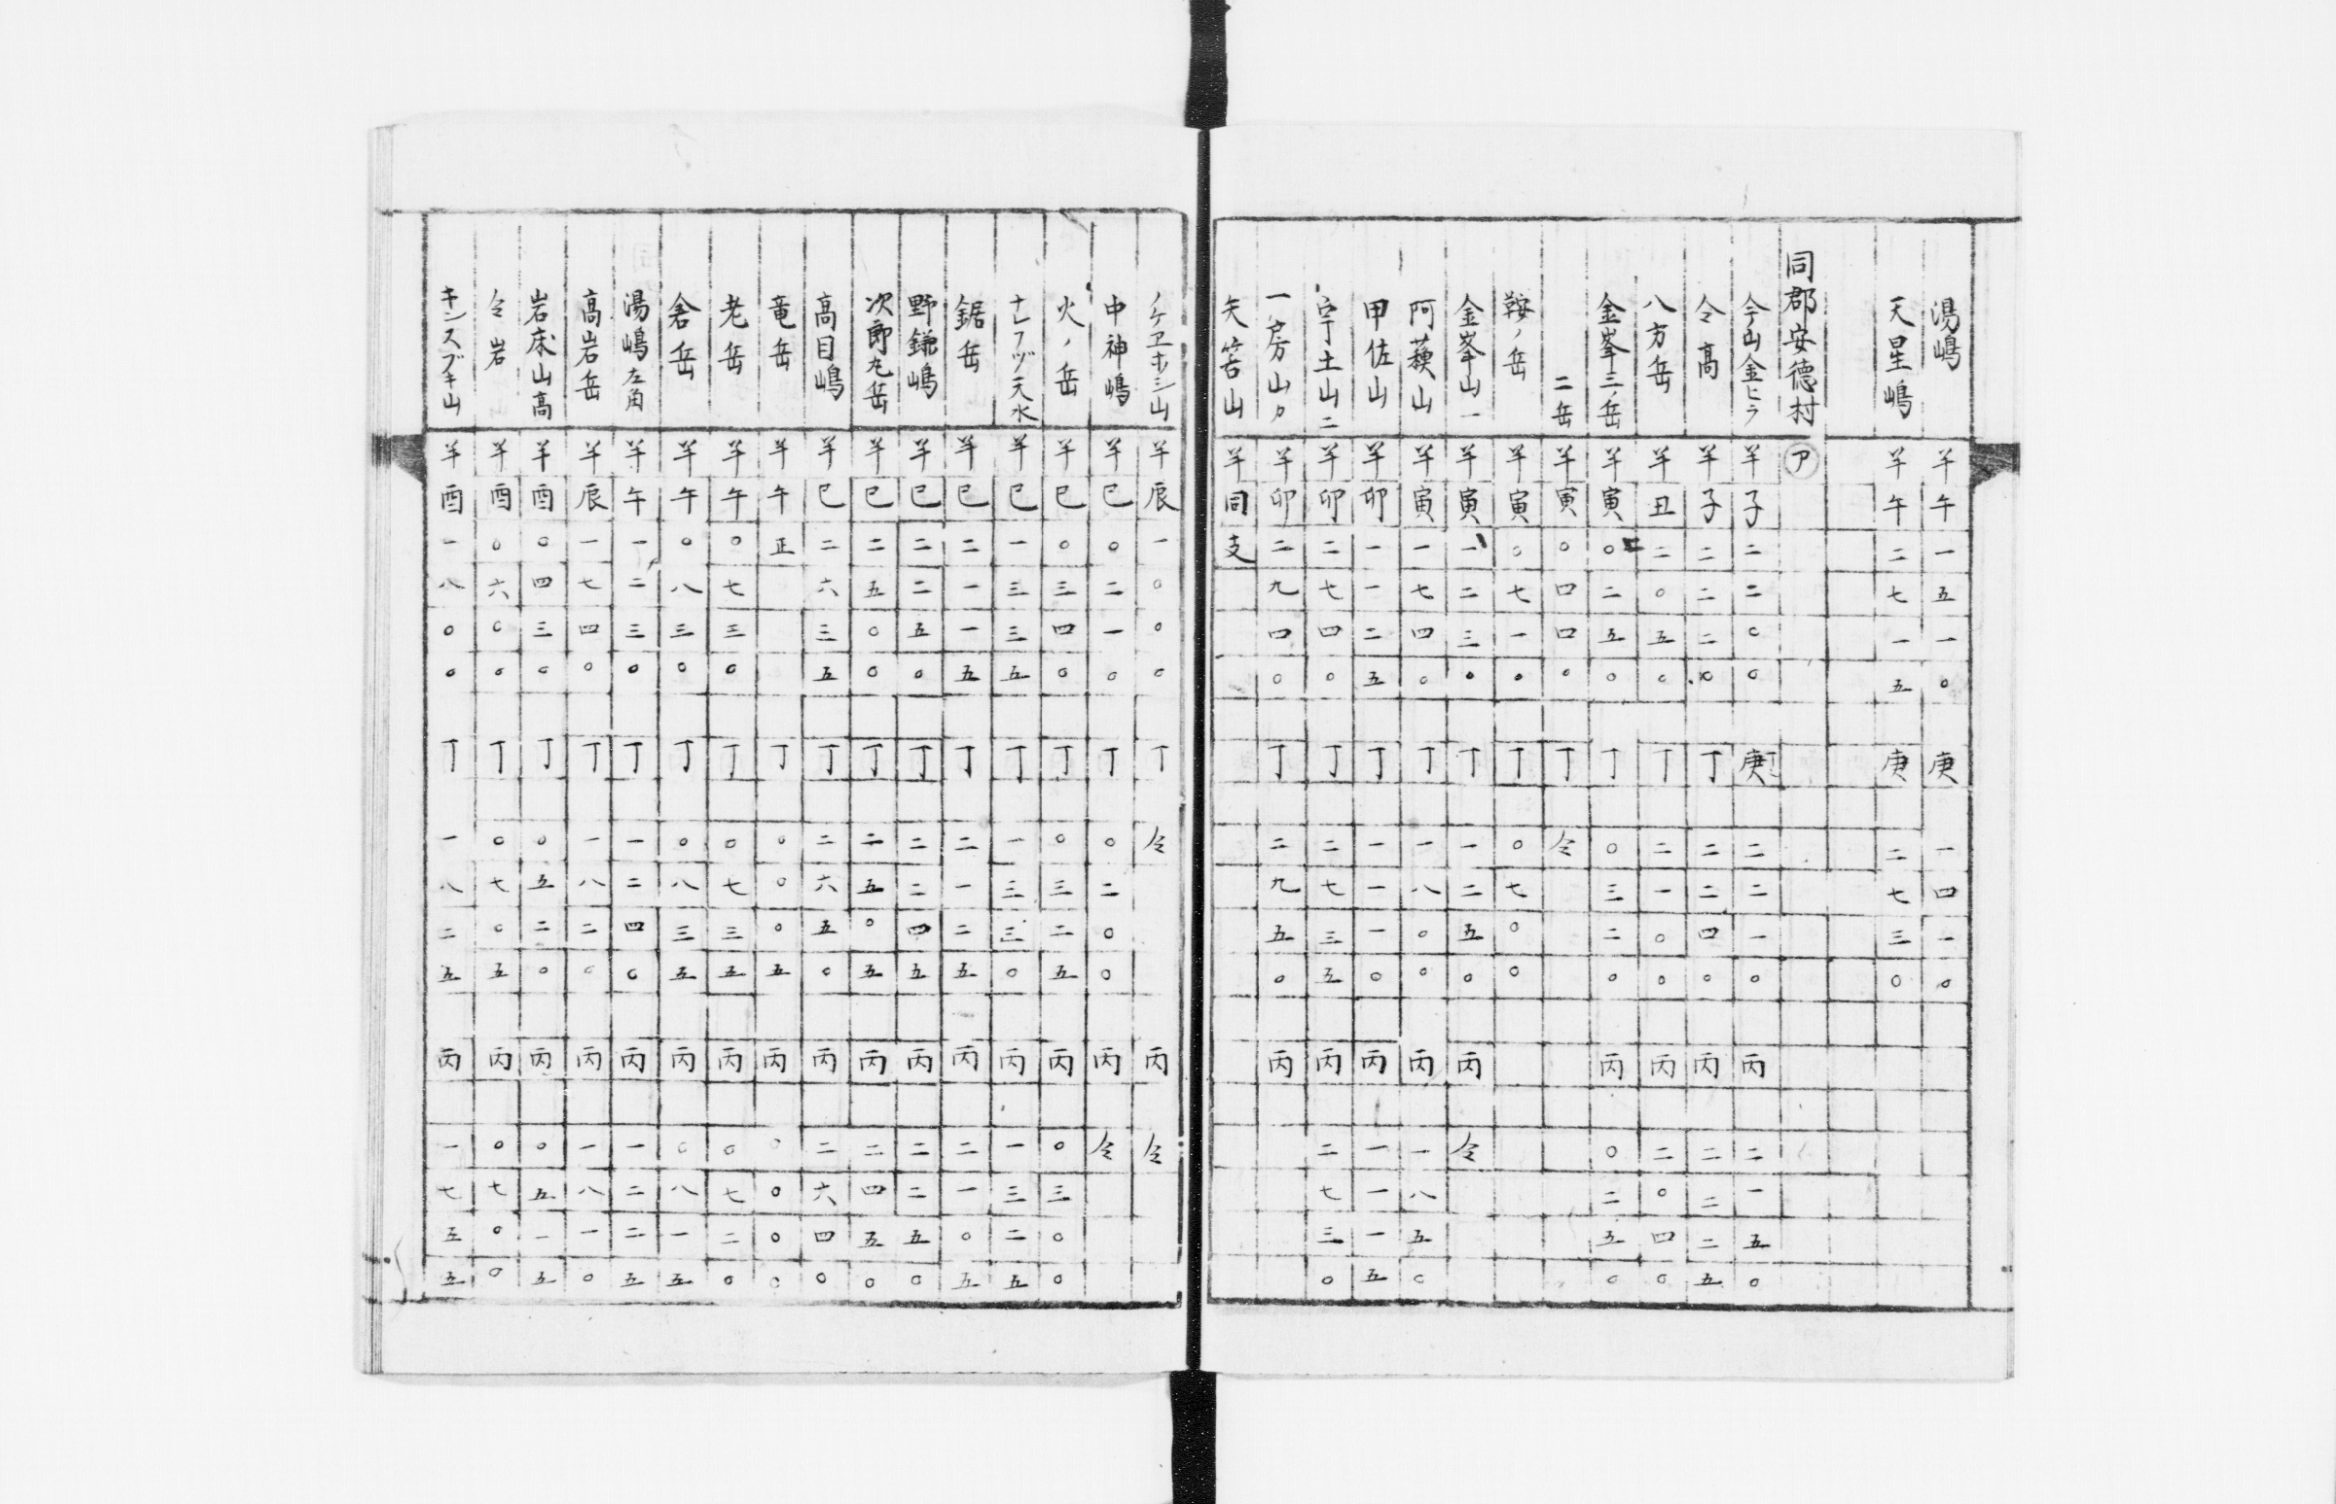 湯嶋 羊 午 一 五 一 〇 庚 一 四 一 〇
天星嶋 羊 午 二 七 一 五 庚 二 七 三 〇
同郡安徳村 ア
今山金ヒラ 羊 子 二 二 〇 〇 庚 丁 二 二 一 〇 丙 二 一 五 〇
仝高 羊 子 二 二 二 〇 丁 二 二 四 〇 丙 二 二 二 五
八方岳 羊 丑 二 〇 五 〇 丁 二 一 〇 〇 丙 二 〇 四 〇
金峯三ノ岳 羊 寅 〇 二 五 〇 丁 〇 三 二 〇 丙 〇 二 五 〇
二岳 羊 寅 〇 四 四 〇 丁 仝
鞍ノ岳 羊 寅 〇 七 一 〇 丁 〇 七 〇 〇
金峯山一 羊 寅 一 二 三 〇 丁 一 二 五 〇 丙 仝
阿蘓山 羊 寅 一 七 四 〇 丁 一 八 〇 〇 丙 一 八 五 〇
甲佐山 羊 卯 一 一 二 五 丁 一 一 一 〇 丙 一 一 一 五
宇土山二 羊 卯 二 七 四 〇 丁 二 七 三 五 丙 二 七 三 〇
一房山カ 羊 卯 二 九 四 〇 丁 二 九 五 〇 丙
矢筈山 羊 同 支
ノケヱホシ山 羊 辰 一 〇 〇 〇 丁 仝 丙 仝
中神嶋 羊 巳 〇 二 一 〇 丁 〇 二 〇 〇 丙 仝
火ノ岳 羊 巳 〇 三 四 〇 丁 〇 三 二 五 丙 〇 三 〇 〇
ナレフヅ天水 羊 巳 一 三 三 五 丁 一 三 三 〇 丙 一 三 二 五
鋸岳 羊 巳 二 一 一 五 丁 二 一 二 五 丙 二 一 〇 五
野鎌嶋 羊 巳 二 二 五 〇 丁 二 二 四 五 丙 二 二 五 〇
次郎丸岳 羊 巳 二 五 〇 〇 丁 二 五 〇 五 丙 二 四 五 〇
高目嶋 羊 巳 二 六 三 五 丁 二 六 五 〇 丙 二 六 四 〇
竜岳 羊 午 正 丁 〇 〇 〇 五 丙 〇 〇 〇 〇
老岳 羊 午 〇 七 三 〇 丁 〇 七 三 五 丙 〇 七 二 〇
倉岳 羊 午 〇 八 三 〇 丁 〇 八 三 五 丙 〇 八 一 五
湯嶋左角 羊 午 一 二 三 〇 丁 一 二 四 〇 丙 一 二 二 五
高岩岳 羊 辰 一 七 四 〇 丁 一 八 二 〇 丙 一 八 一 〇
岩床山高 羊 酉 〇 四 三 〇 丁 〇 五 二 〇 丙 〇 五 一 五
仝岩 羊 酉 〇 六 〇 〇 丁 〇 七 〇 五 丙 〇 七 〇 〇
キンスブキ山 羊 酉 一 八 〇 〇 丁 一 八 二 五 丙 一 七 五 五